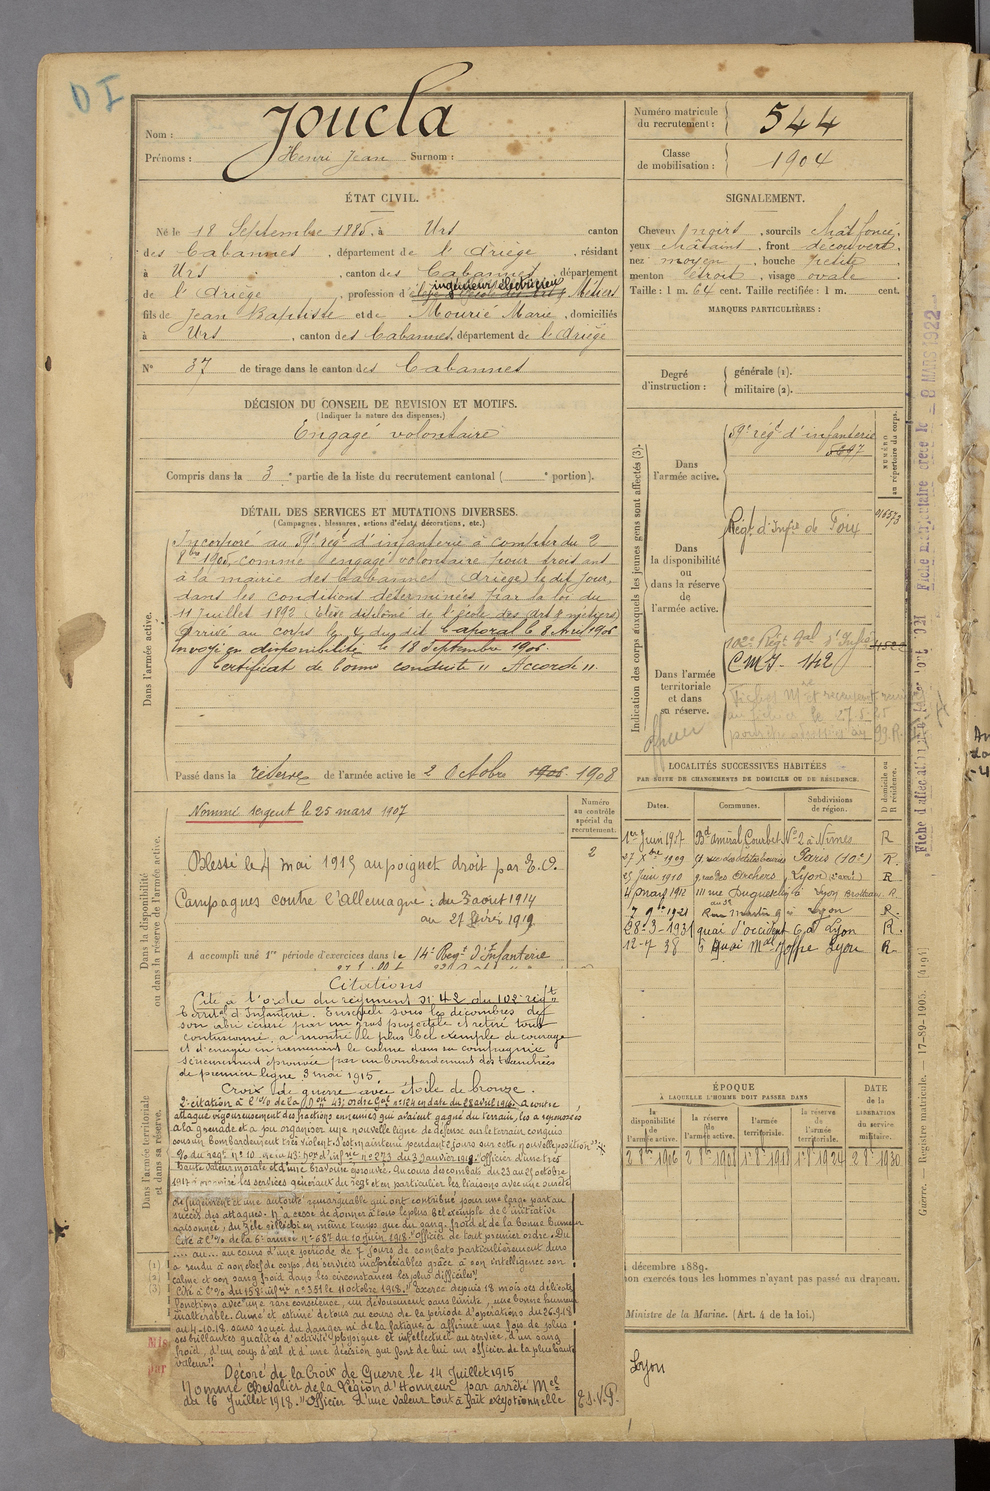 D I
Nom : Joucla
Prénoms : Henri Jean Surnom :
Numéro matricule du recrutement : 544
Classe de mobilisation : 1904
ÉTAT CIVIL.
Né le 18 Septembre 1885, à Urs canton
des Cabannes, département de l'Ariège, résidant
à Urs, canton des Cabannes, département
ingénieur électricien
de l'Ariège, profession d' Métiers
fils de Jean Baptiste et de Mourié Marie, domiciliés
à Urs, canton des Cabannes, département de l'Ariège
N° 37 de tirage dans le canton des Cabannes
SIGNALEMENT.
Cheveux noirs, sourcils chat foncé,
yeux châtains, front découvert,
nez moyen, bouche petite,
menton étroit, visage ovale.
Taille : 1 m. 64 cent. Taille rectifiée : 1 m. cent.
MARQUES PARTICULIÈRES :
Degré d'instruction : générale (1).
militaire (2).
DÉCISION DU CONSEIL DE REVISION ET MOTIFS.
(Indiquer la nature des dispenses.)
Engagé volontaire
Compris dans la 3e partie de la liste du recrutement cantonal ( e portion).
DÉTAIL DES SERVICES ET MUTATIONS DIVERSES.
(Campagnes, blessures, actions d'éclat, décorations, etc.)
Dans l'armée active.
Incorporé au régt d'infanterie à compter du 2
8bre 1905, comme engagé volontaire pour trois ans
à la mairie des Cabannes (Ariège) le dit jour,
dans les conditions déterminées par la loi du
11 Juillet 1892 (élève diplômé de l'école des arts & métiers)
Arrivé au corps le dit Caporal le 8 Avril 1906
Envoyé en disponibilité le 18 Septembre 1906.
Certificat de bonne conduite " Accordé ".
Passé dans la réserve de l'armée active le 2 Octobre 1906 1908
Indication des corps auxquels les jeunes gens sont affectés (3).
NUMÉRO au répertoire du corps.
Dans l'armée active.
régt d'infanterie
Dans la disponibilité ou dans la réserve de l'armée active.
Régt d'Infie de Foix
Dans l'armée territoriale et dans sa réserve.
102e Régt d'Infie
CMJ - 142
officier
LOCALITÉS SUCCESSIVES HABITÉES
PAR SUITE DE CHANGEMENTS DE DOMICILE OU DE RÉSIDENCE.
Dates. Communes. Subdivisions de région. D domicile ou R résidence.
1er Juin 1907 Bd amiral Courbet No 2 à Nîmes R
27 Xbre 1909 Paris (10e) R.
25 Juin 1910 9 rue des Archers Lyon R
4 mars 1912 111 rue Duguesclin à Lyon R
7 9bre 1921 Rue Martin 9 à Lyon R.
28-3-1931 quai d'occident 6 à Lyon R.
12-7 38 6 Quai Mal Joffre Lyon R.
Dans la disponibilité ou dans la réserve de l'armée active.
Numéro au contrôle spécial du recrutement.
2
Nommé sergent le 25 mars 1907
Blessé le 4 mai 1915 au poignet droit par E.O.
Campagnes contre l'Allemagne : du 3 août 1914
au 27 février 1919
A accompli une 1re période d'exercices dans le 14e Régt d'Infanterie
Citations
Cité à l'ordre du régiment N° 42 du 102e régt
territal d'Infanterie. Enseveli sous les décombres de
son abri écrasé par un gros projectile et retiré tout
contusionné, a montré le plus bel exemple de courage
et d'énergie en ramenant le calme dans sa compagnie
sérieusement éprouvée par un bombardement des tranchées
de première ligne 3 mai 1915
Croix de guerre avec étoile de bronze.
2e citation à l'O/ de la Don 43, ordre Gal n° 124 en date du 28 avril 1916. A contre
attaqué vigoureusement des fractions ennemies qui avaient gagné du terrain, les a repoussées
à la grenade et a pu organiser une nouvelle ligne de défense sur le terrain conquis
sous un bombardement très violent. S'est maintenu pendant 2 jours sur cette nouvelle position
Officier d'une très
haute valeur morale et d'une bravoure éprouvée. Au cours des combats du 23 au 25 octobre
1917 a organisé les services généraux du régt et en particulier les liaisons avec une sûreté
de jugement et une autorité remarquable qui ont contribué pour une large part au
succès des attaques. N'a cessé de donner à tous le plus bel exemple de l'initiative
raisonnée, du zèle réfléchi en même temps que du sang-froid et de la bonne humeur
Cité à l'O/ de la 6e armée n° 637 du 10 juin 1918. "Officier de tout premier ordre. Du
.... au ... au cours d'une période de 7 jours de combats particulièrement durs
a rendu à son chef de corps des services inappréciables grâce à son intelligence son
calme et son sang froid dans les circonstances les plus difficiles"
Cité à l'O/ du 158e infie n° 351 le 11 octobre 1918. "Exerce depuis 18 mois ses délicates
fonctions avec une rare conscience, un dévouement sans limite, une bonne humeur
inaltérable. Aimé et estimé de tous au cours de la période d'opérations du 26.9.18
au 4.10.18, sans souci du danger ni de la fatigue a affirmé une fois de plus
ses brillantes qualités d'activité physique et intellectuel au service d'un sang
froid, d'un coup d'œil et d'une décision qui font de lui un officier de la plus haute
valeur".
Décoré de la Croix de Guerre le 14 Juillet 1915
Nommé Chevalier de la Légion d'Honneur par arrêté Mel
du 16 Juillet 1918. "Officier d'une valeur tout à fait exceptionnelle
T.S.V.P.
Dans l'armée territoriale et dans sa réserve.
(1)
(2)
(3)
ÉPOQUE
À LAQUELLE L'HOMME DOIT PASSER DANS
la disponibilité de l'armée active. la réserve de l'armée active. l'armée territoriale. la réserve de l'armée territoriale. DATE de la LIBÉRATION du service militaire.
2 8bre 1906 2 8bre 1908 1er 8bre 1918 1er 8bre 1924 2 8bre 1930
décembre 1889.
non exercés tous les hommes n'ayant pas passé au drapeau.
Ministre de la Marine. (Art. 4 de la loi.)
Lyon
8 MARS 1922
Giderre. Registre matricule. 17-89-1905. [419]